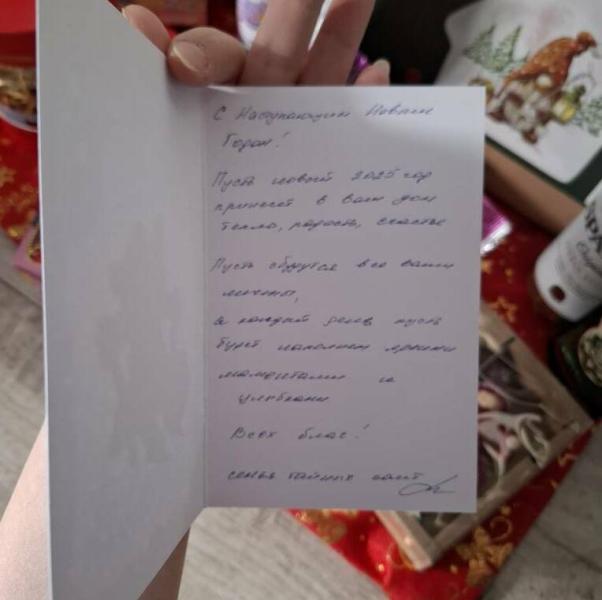 С Наступающим Новым
Годом!
Пусть новый 2025 год
принесет в ваш дом
тепло, радость, счастье
Пусть сбудутся все ваши
мечты,
а каждый день пусть
будет наполнен яркими
моментами и
улыбками
Всех благ!
семья тайных